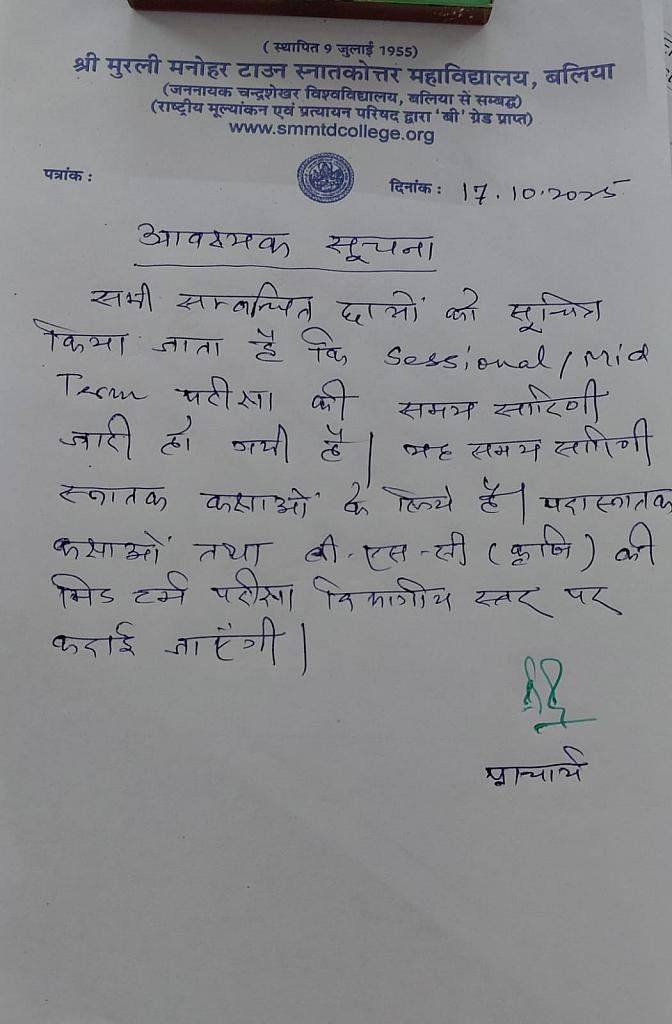 ( स्थापित 9 जुलाई 1955)
श्री मुरली मनोहर टाउन स्नातकोत्तर महाविद्यालय, बलिया
(जननायक चन्द्रशेखर विश्वविद्यालय, बलिया सें सम्बद्ध)
(राष्ट्रीय मूल्यांकन एवं प्रत्यायन परिषद द्वारा 'बी' ग्रेड प्राप्त)
www.smmtdcollege.org
पत्रांक :
दिनांक : 17.10.2025
आवश्यक सूचना
सभी सम्बन्धित छात्रों को सूचित
किया जाता है कि Sessional/Mid
Term परीक्षा की समय सारिणी
जारी हो गयी है। यह समय सारिणी
स्नातक कक्षाओं के लिये है। परास्नातक
कक्षाओं तथा बी-एस-सी (कृषि) की
मिड टर्म परीक्षा विभागीय स्तर पर
कराई जाएंगी।
प्राचार्य